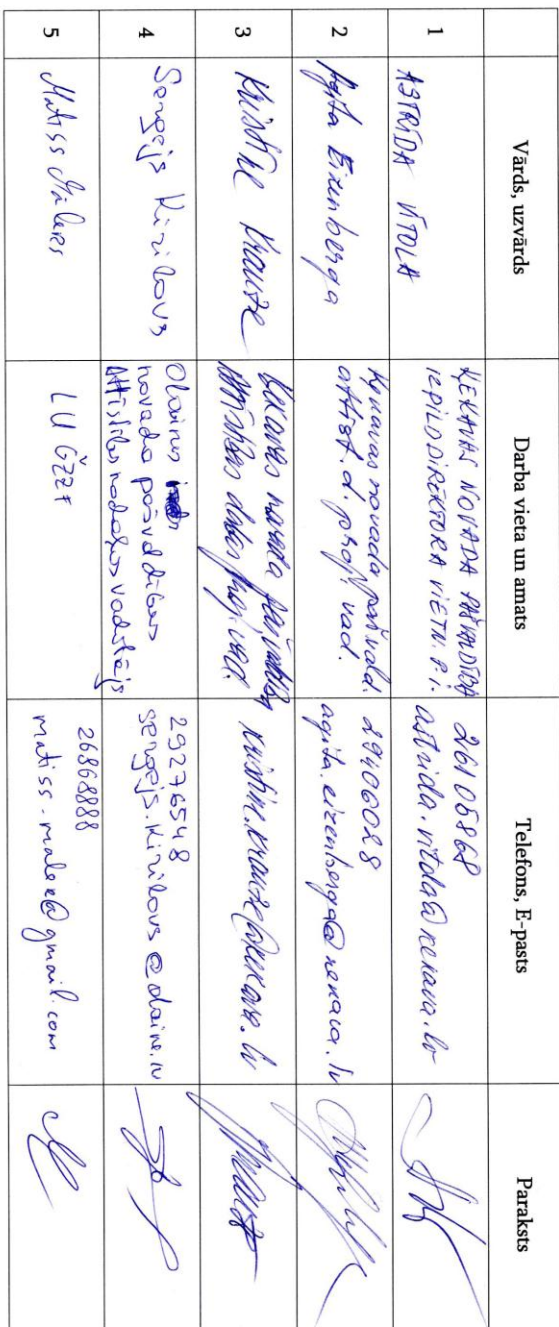 Vārds, uzvārds
Darba vieta un amats
Telefons, E-pasts
Paraksts
1
ASTRĪDA VĪTOLA
ĶEKAVAS NOVADA PAŠVALDĪBA
IZPILDDIREKTORA VIETN. P.I.
26105868
astrida.vitola@kekava.lv
2
Agita Eizenberga
Ķekavas novada pašvald.
attīst. d. proj. vad.
29406028
agita.eizenberga@kekava.lv
3
Kristīne Krauze
Ķekavas novada pašvaldības
attīstības daļas proj. vad.
kristine.krauze@kekava.lv
4
Sergejs Kirilovs
Olaines
novada pašvaldības
Attīstības nodaļas vadītājs
29276548
sergejs.kirilovs@olaine.lv
5
Matīss
LU ĢZZF
26868888